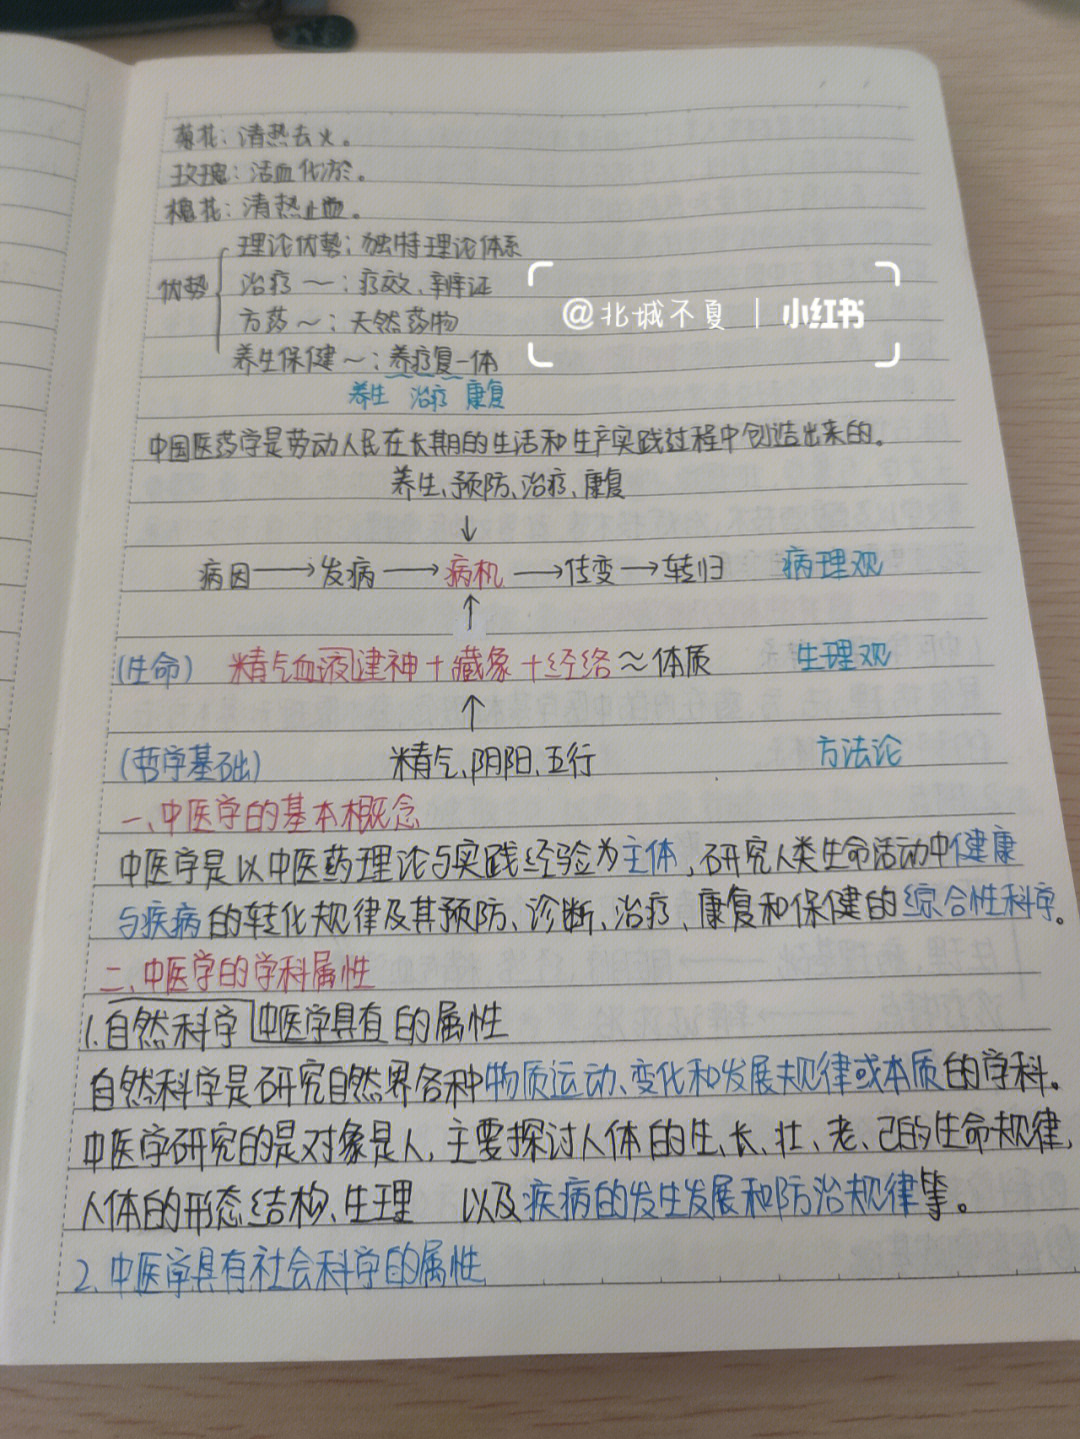 菊花：清热去火。
玫瑰：活血化淤。
槐花：清热止血。
优势
理论优势：独特理论体系
治疗～：疗效、辨证
方药～：天然药物
养生保健～：养疗复一体
养生 治疗 康复
@北城不夏 | 小红书
中国医药学是劳动人民在长期的生活和生产实践过程中创造出来的。
养生、预防、治疗、康复
↓
病因→发病→病机→传变→转归 病理观
↑
(生命) 精气血液津神+藏象+经络≈体质 生理观
↑
(哲学基础) 精气、阴阳、五行 方法论
一、中医学的基本概念
中医学是以中医药理论与实践经验为主体，研究人类生命活动中健康
与疾病的转化规律及其预防、诊断、治疗、康复和保健的综合性科学。
二、中医学的学科属性
1.自然科学中医学具有的属性
自然科学是研究自然界各种物质运动、变化和发展规律或本质的学科。
中医学研究的是对象是人，主要探讨人体的生、长、壮、老、己的生命规律，
人体的形态结构、生理 以及疾病的发生发展和防治规律等。
2.中医学具有社会科学的属性